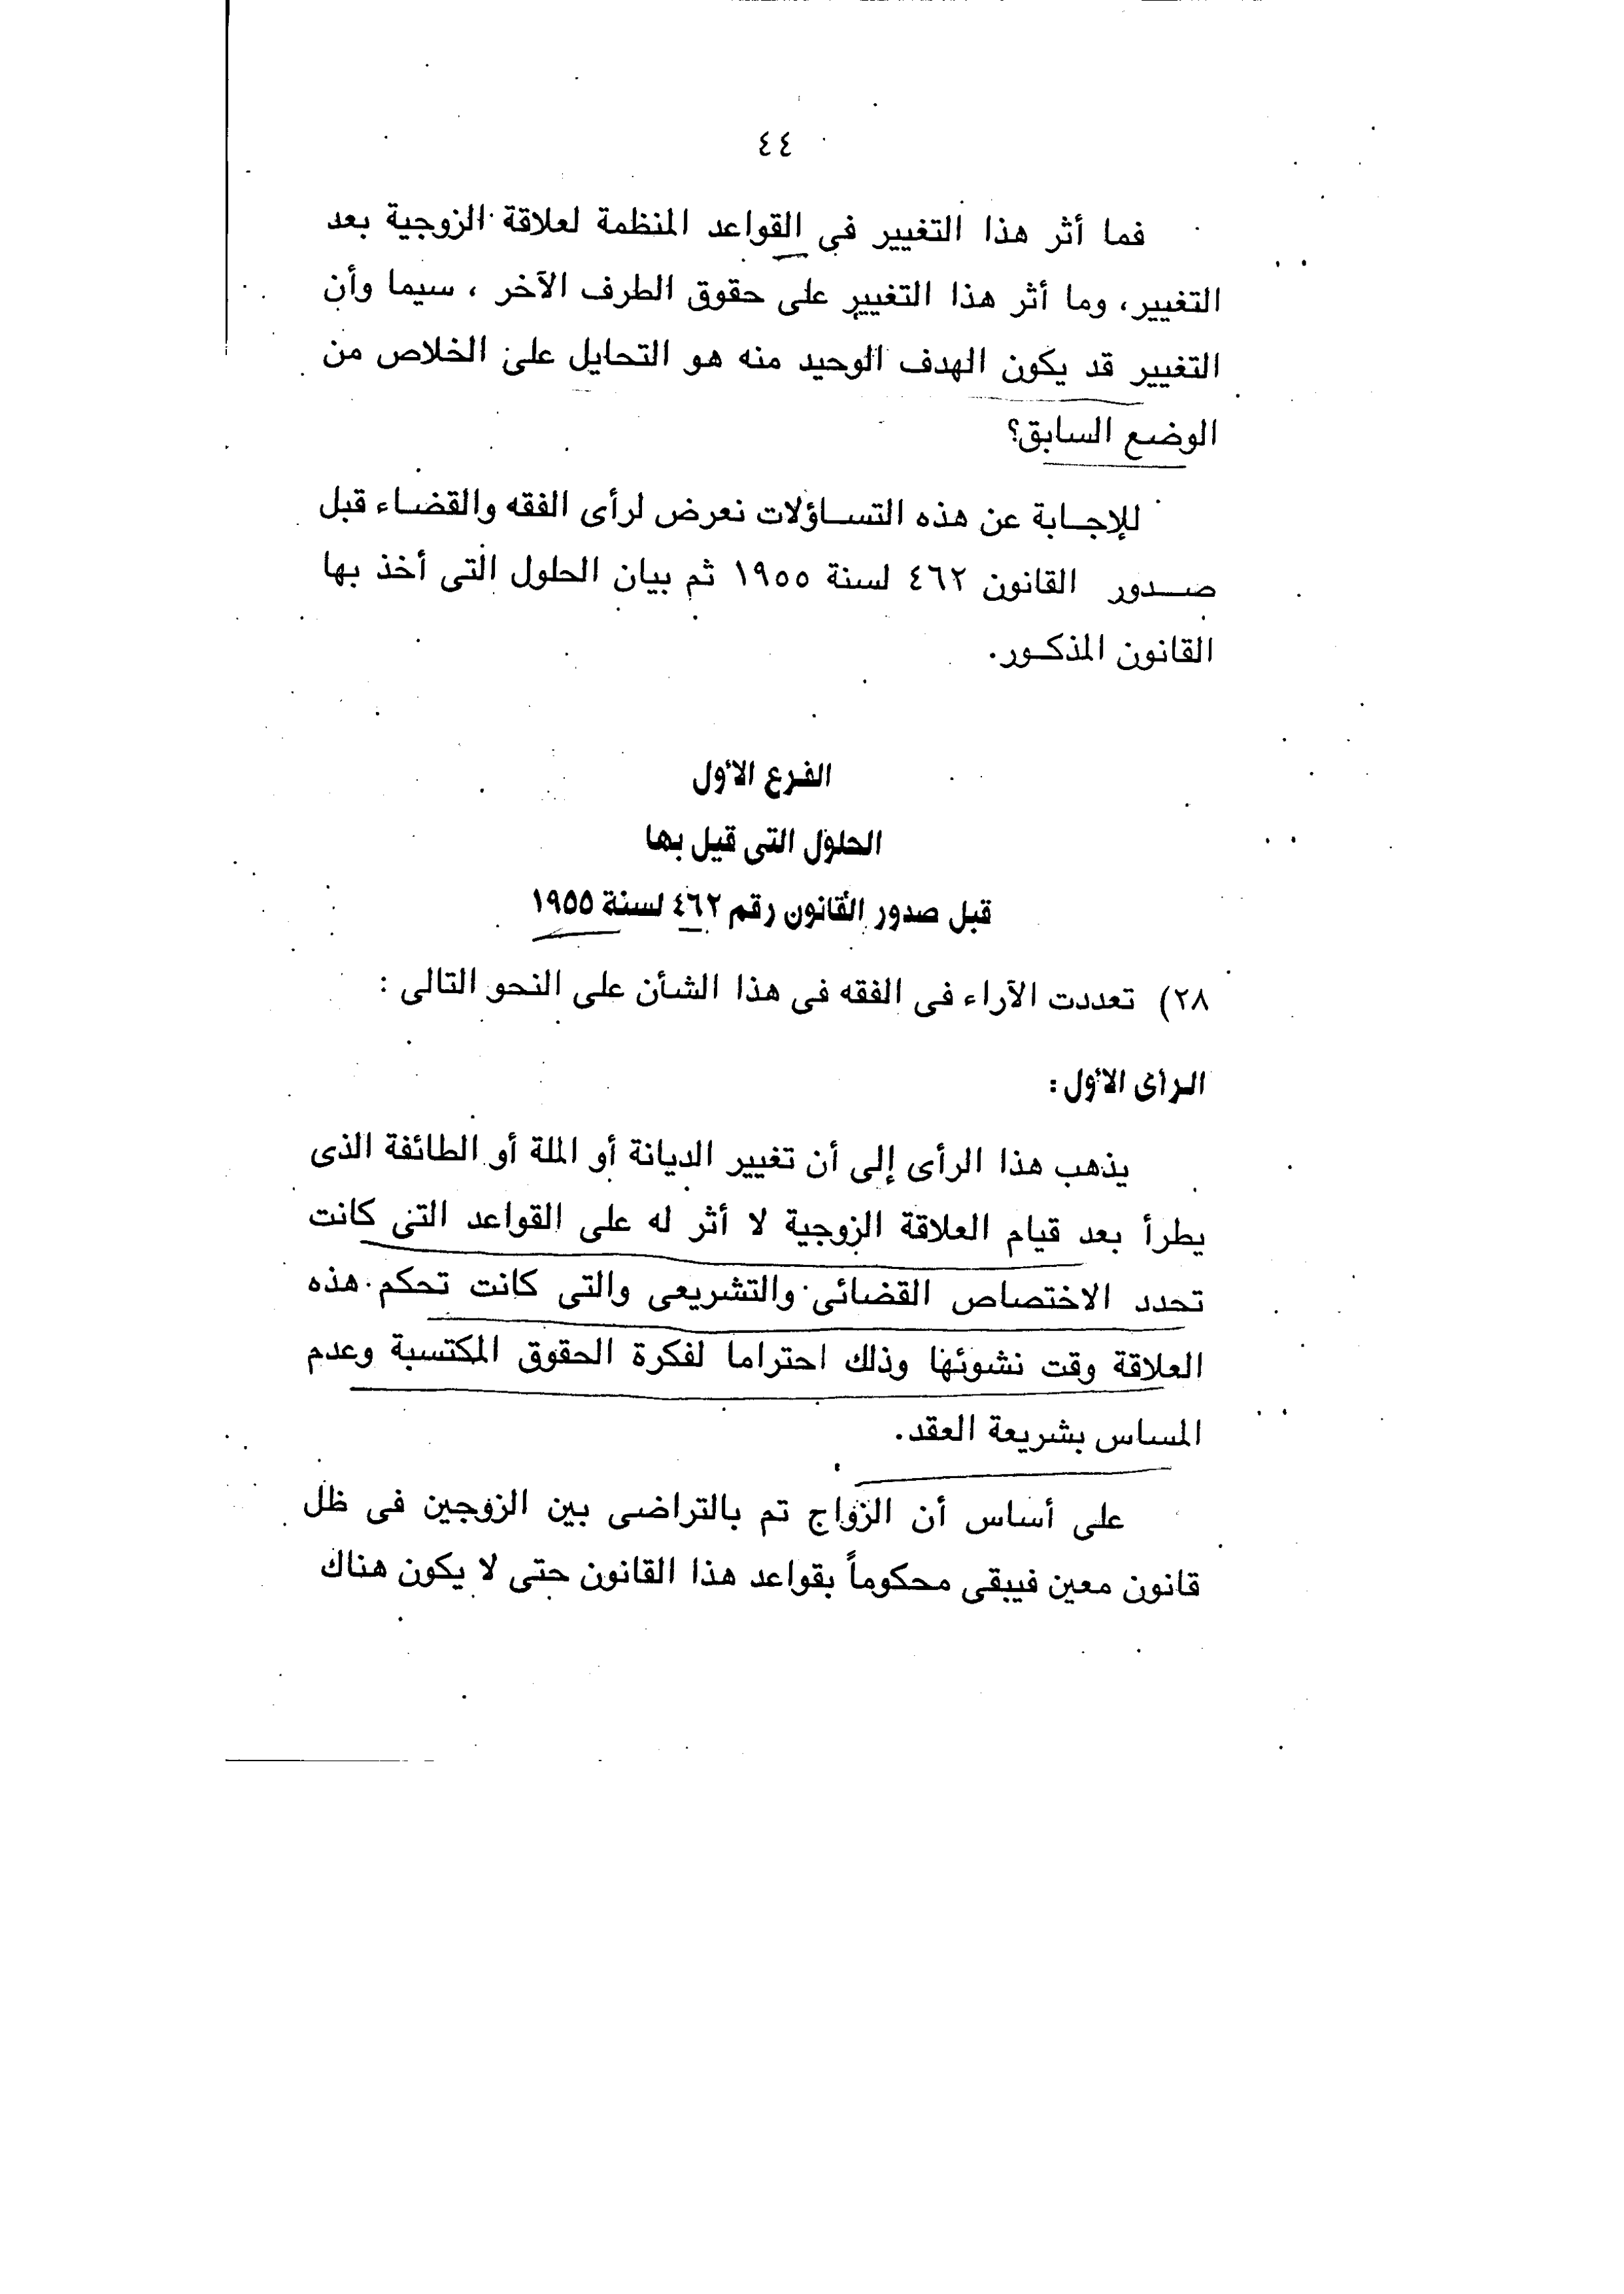 ٤٤
فما أثر هذا التغيير في القواعد المنظمة لعلاقة الزوجية بعد
التغيير، وما أثر هذا التغيير على حقوق الطرف الآخر ، سيما وأن
التغيير قد يكون الهدف الوحيد منه هو التحايل على الخلاص من
الوضع السابق؟
للإجـابة عن هذه التسـاؤلات نعرض لرأى الفقه والقضـاء قبل
صــدور القانون ٤٦٢ لسنة ١٩٥٥ ثم بيان الحلول التى أخذ بها
القانون المذكـور.
الفرع الأول
الحلول التى قيل بها
قبل صدور القانون رقم ٤٦٢ لسنة ١٩٥٥
٢٨) تعددت الآراء فى الفقه فى هذا الشأن على النحو التالى :
الرأى الأول:
يذهب هذا الرأى إلى أن تغيير الديانة أو الملة أو الطائفة الذى
يطرأ بعد قيام العلاقة الزوجية لا أثر له على القواعد التى كانت
تحدد الاختصاص القضائى والتشريعى والتى كانت تحكم هذه
العلاقة وقت نشوئها وذلك احتراما لفكرة الحقوق المكتسبة وعدم
المساس بشريعة العقد.
على أساس أن الزواج تم بالتراضى بين الزوجين فى ظل
قانون معين فيبقى محكوماً بقواعد هذا القانون حتى لا يكون هناك